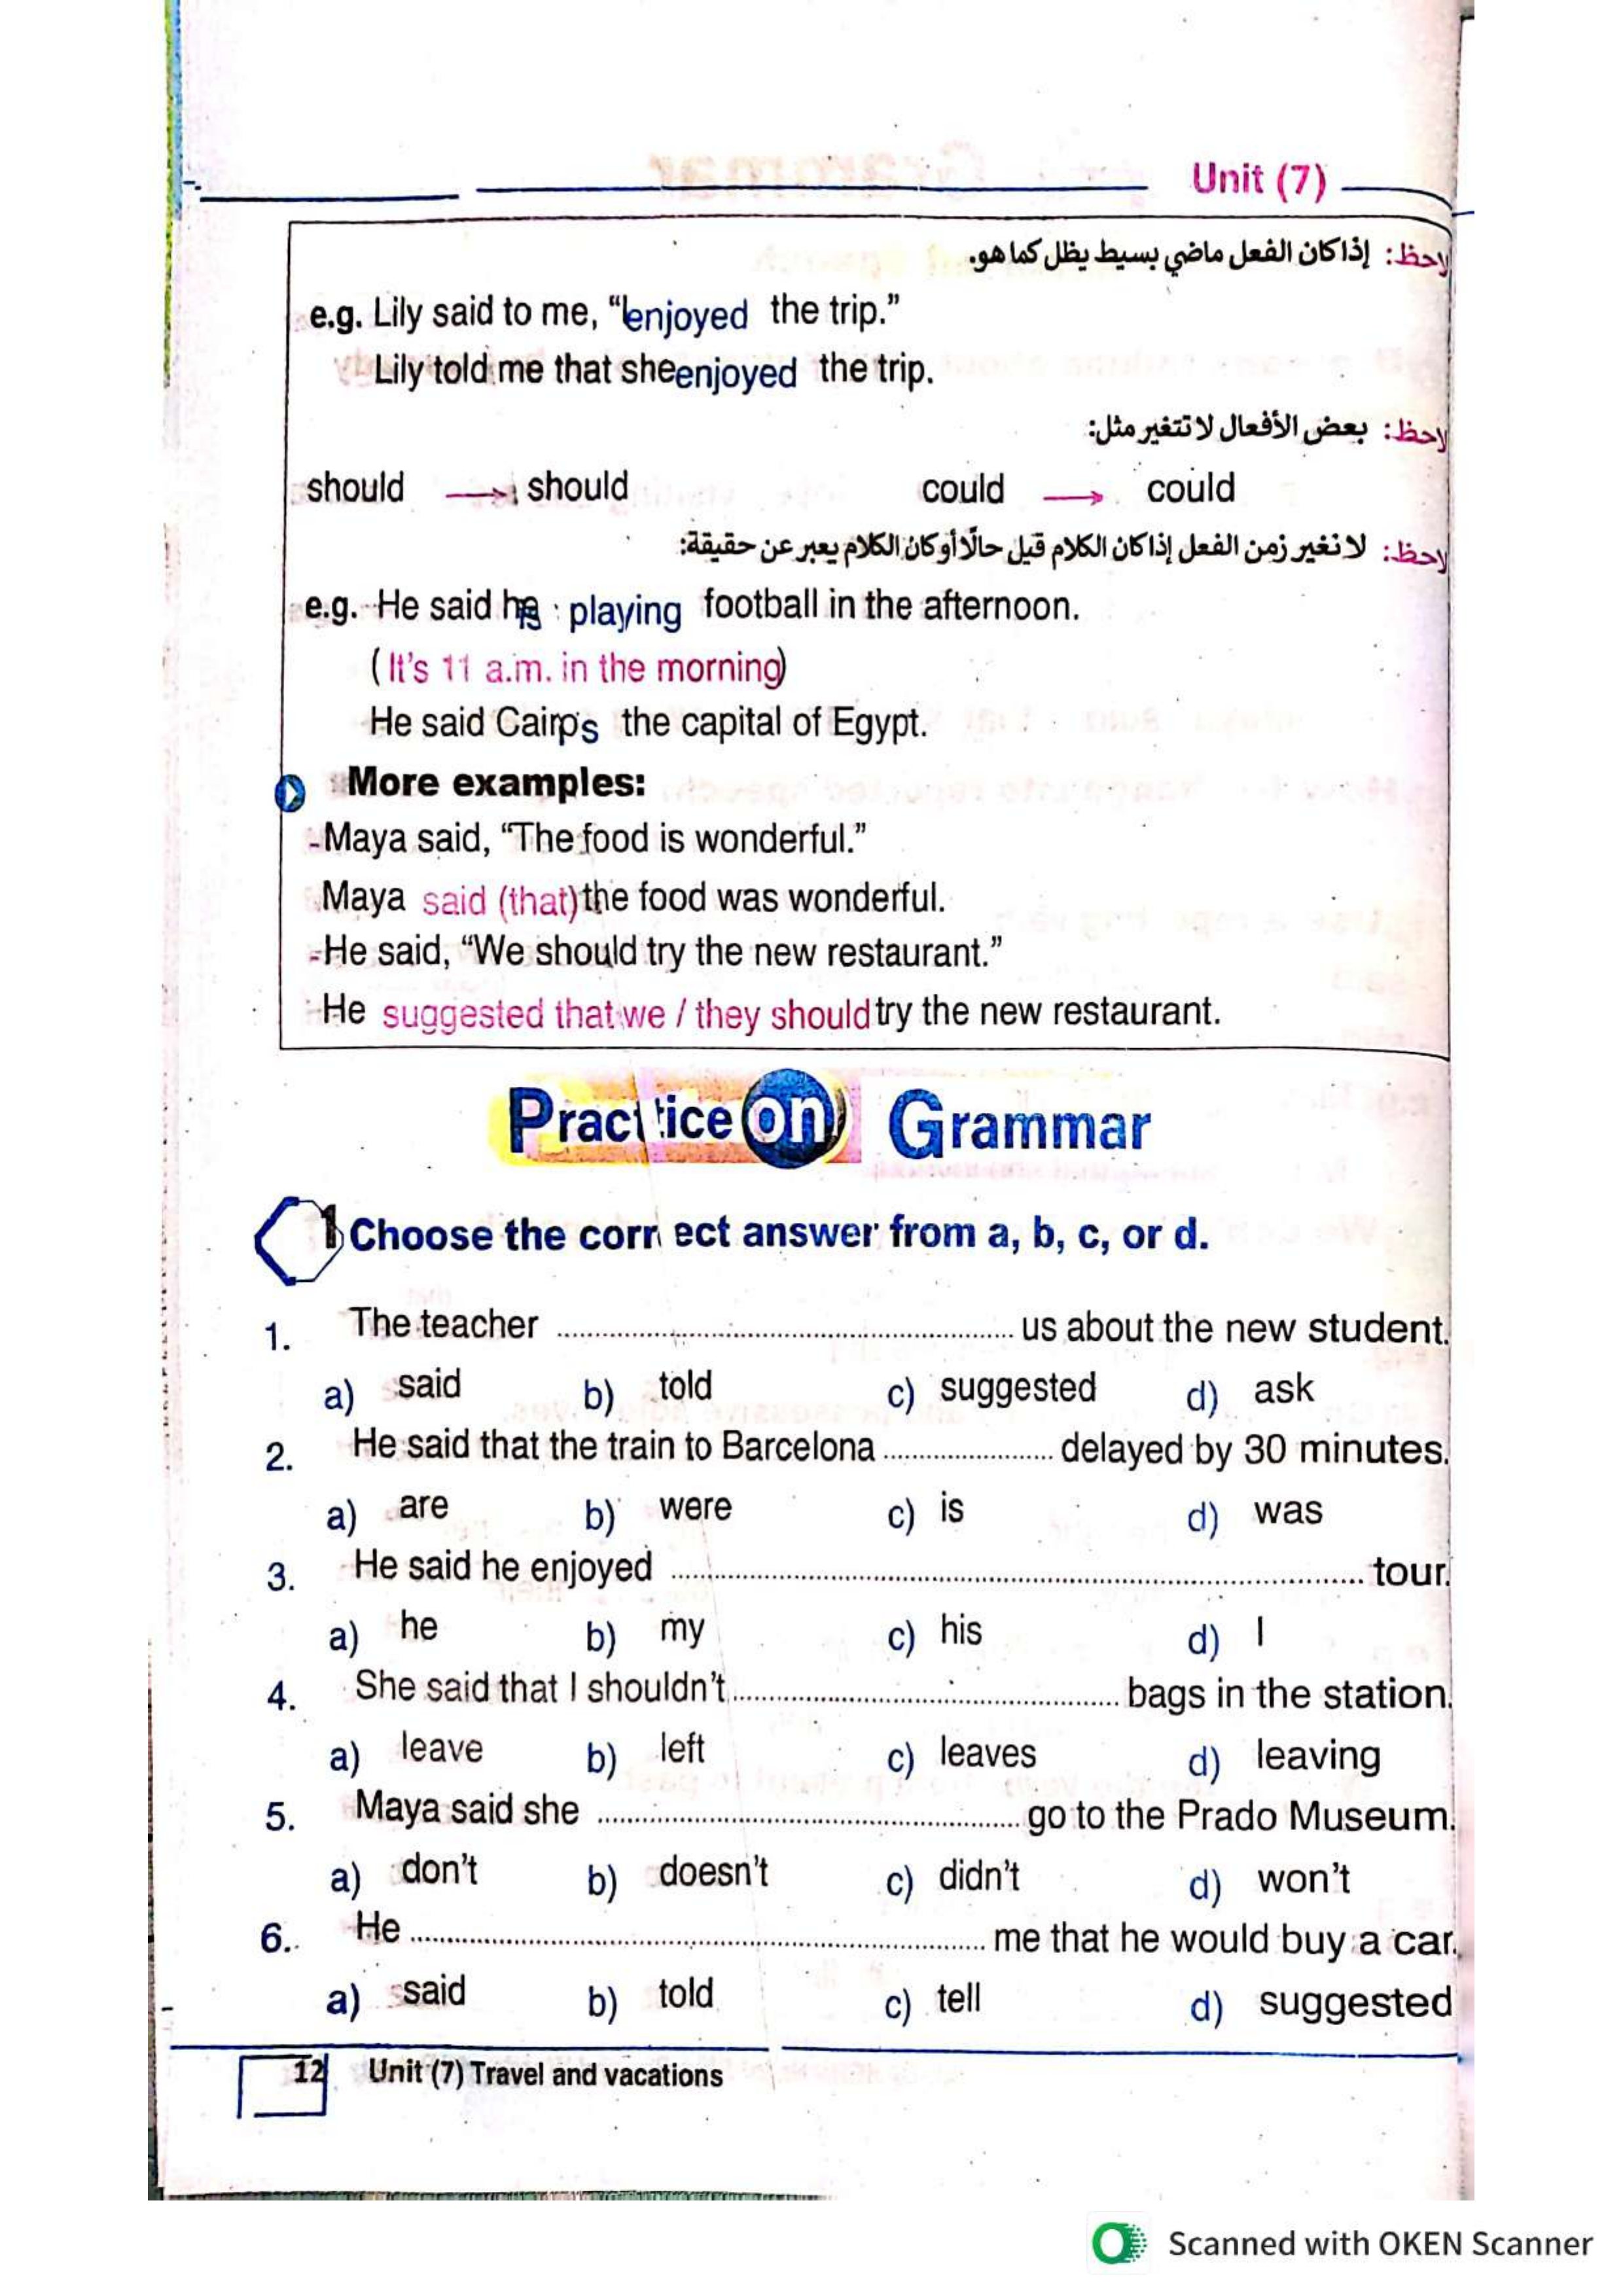 Unit (7)
لاحظ: إذا كان الفعل ماضي بسيط يظل كما هو.
e.g. Lily said to me, “I enjoyed the trip.”
Lily told me that she enjoyed the trip.
لاحظ: بعض الأفعال لا تتغير مثل:
should → should could → could
لاحظ: لا نغير زمن الفعل إذا كان الكلام قيل حالًا أو كان الكلام يعبر عن حقيقة:
e.g. He said he is playing football in the afternoon.
(It's 11 a.m. in the morning)
He said Cairo is the capital of Egypt.
More examples:
- Maya said, “The food is wonderful.”
Maya said (that) the food was wonderful.
- He said, “We should try the new restaurant.”
He suggested that we / they should try the new restaurant.
Practice on Grammar
1 Choose the correct answer from a, b, c, or d.
1. The teacher .................... us about the new student.
a) said b) told c) suggested d) ask
2. He said that the train to Barcelona .................... delayed by 30 minutes.
a) are b) were c) is d) was
3. He said he enjoyed .................... tour.
a) he b) my c) his d) I
4. She said that I shouldn't .................... bags in the station.
a) leave b) left c) leaves d) leaving
5. Maya said she .................... go to the Prado Museum.
a) don't b) doesn't c) didn't d) won't
6. He .................... me that he would buy a car.
a) said b) told c) tell d) suggested
12 Unit (7) Travel and vacations
Scanned with OKEN Scanner